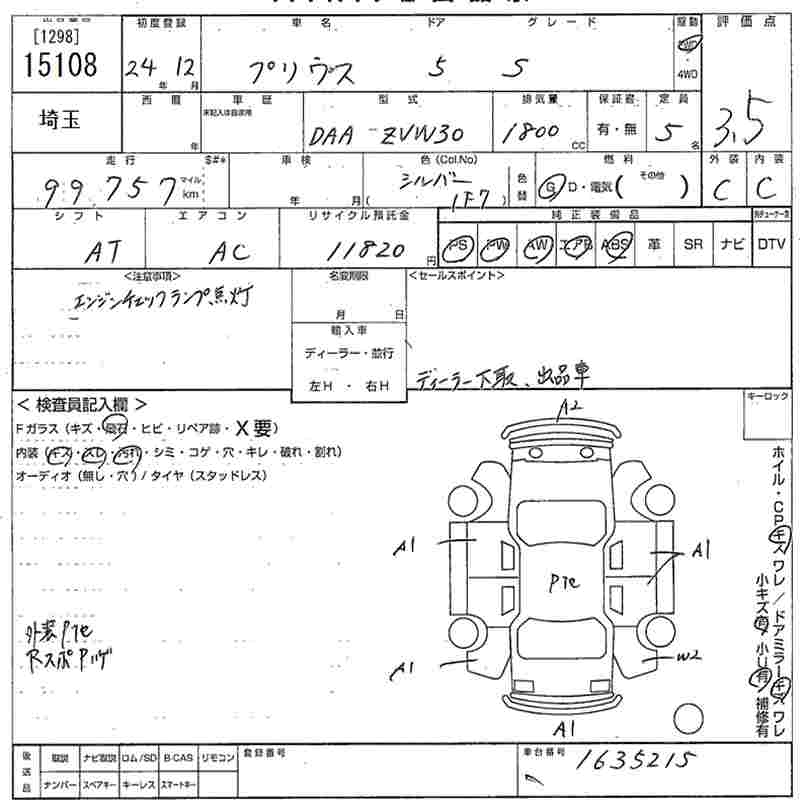 出品番号
[1298]
15108
初度登録
24年 12月
車名
プリウス
ドア
5
グレード
S
駆動
2WD
4WD
評価点
3.5
埼玉
西暦
年
車歴
未記入は自家用
型式
DAA ZVW30
排気量
1800 CC
保証書
有・無
定員
5名
走行
99757
マイル
km
S#*
車検
年 月
色(Col.No)
シルバー
( 1F7 )
色替
燃料
G D・電気( その他 )
外装
C
内装
C
シフト
AT
エアコン
AC
リサイクル預託金
11820円
純正装備品
PS PW AW エアB ABS 革 SR ナビ DTV
<注意事項>
エンジンチェックランプ点灯
名変期限
月 日
輸入車
ディーラー・並行
左H ・ 右H
<セールスポイント>
ディーラー下取、出品車
<検査員記入欄>
Fガラス(キズ・飛石・ヒビ・リペア跡・X要)
内装(キズ・スレ・汚れ・シミ・コゲ・穴・キレ・破れ・割れ)
オーディオ(無し・穴)/タイヤ(スタッドレス)
外装Pテ
RスポPハゲ
A2
A1
A1
Pテ
A1
W2
A1
キーロック
ホイル・CPキズワレ/ドアミラーキズワレ
小キズ有 小U有 補修有
後送品
取説 ナビ取説 ロム/SD B-CAS リモコン
ナンバー スペアキー キーレス スマートキー
登録番号
車台番号
1635215